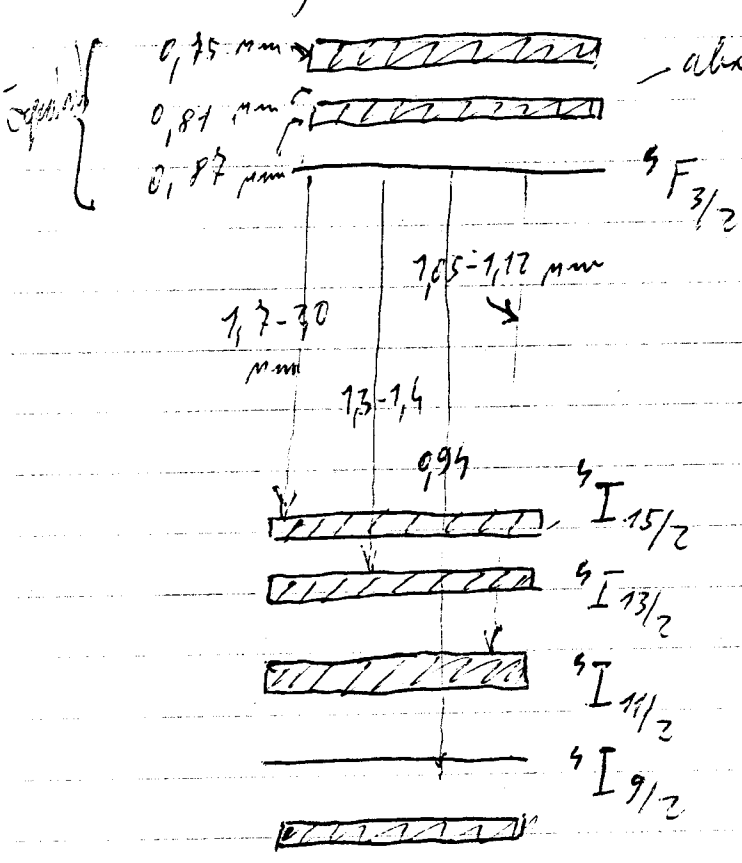 0,75 μm
0,81 μm
0,87 μm
⁴F3/2
1,05-1,12 μm
1,7-2,0
μm
1,3-1,4
0,94
⁴I15/2
⁴I13/2
⁴I11/2
⁴I9/2